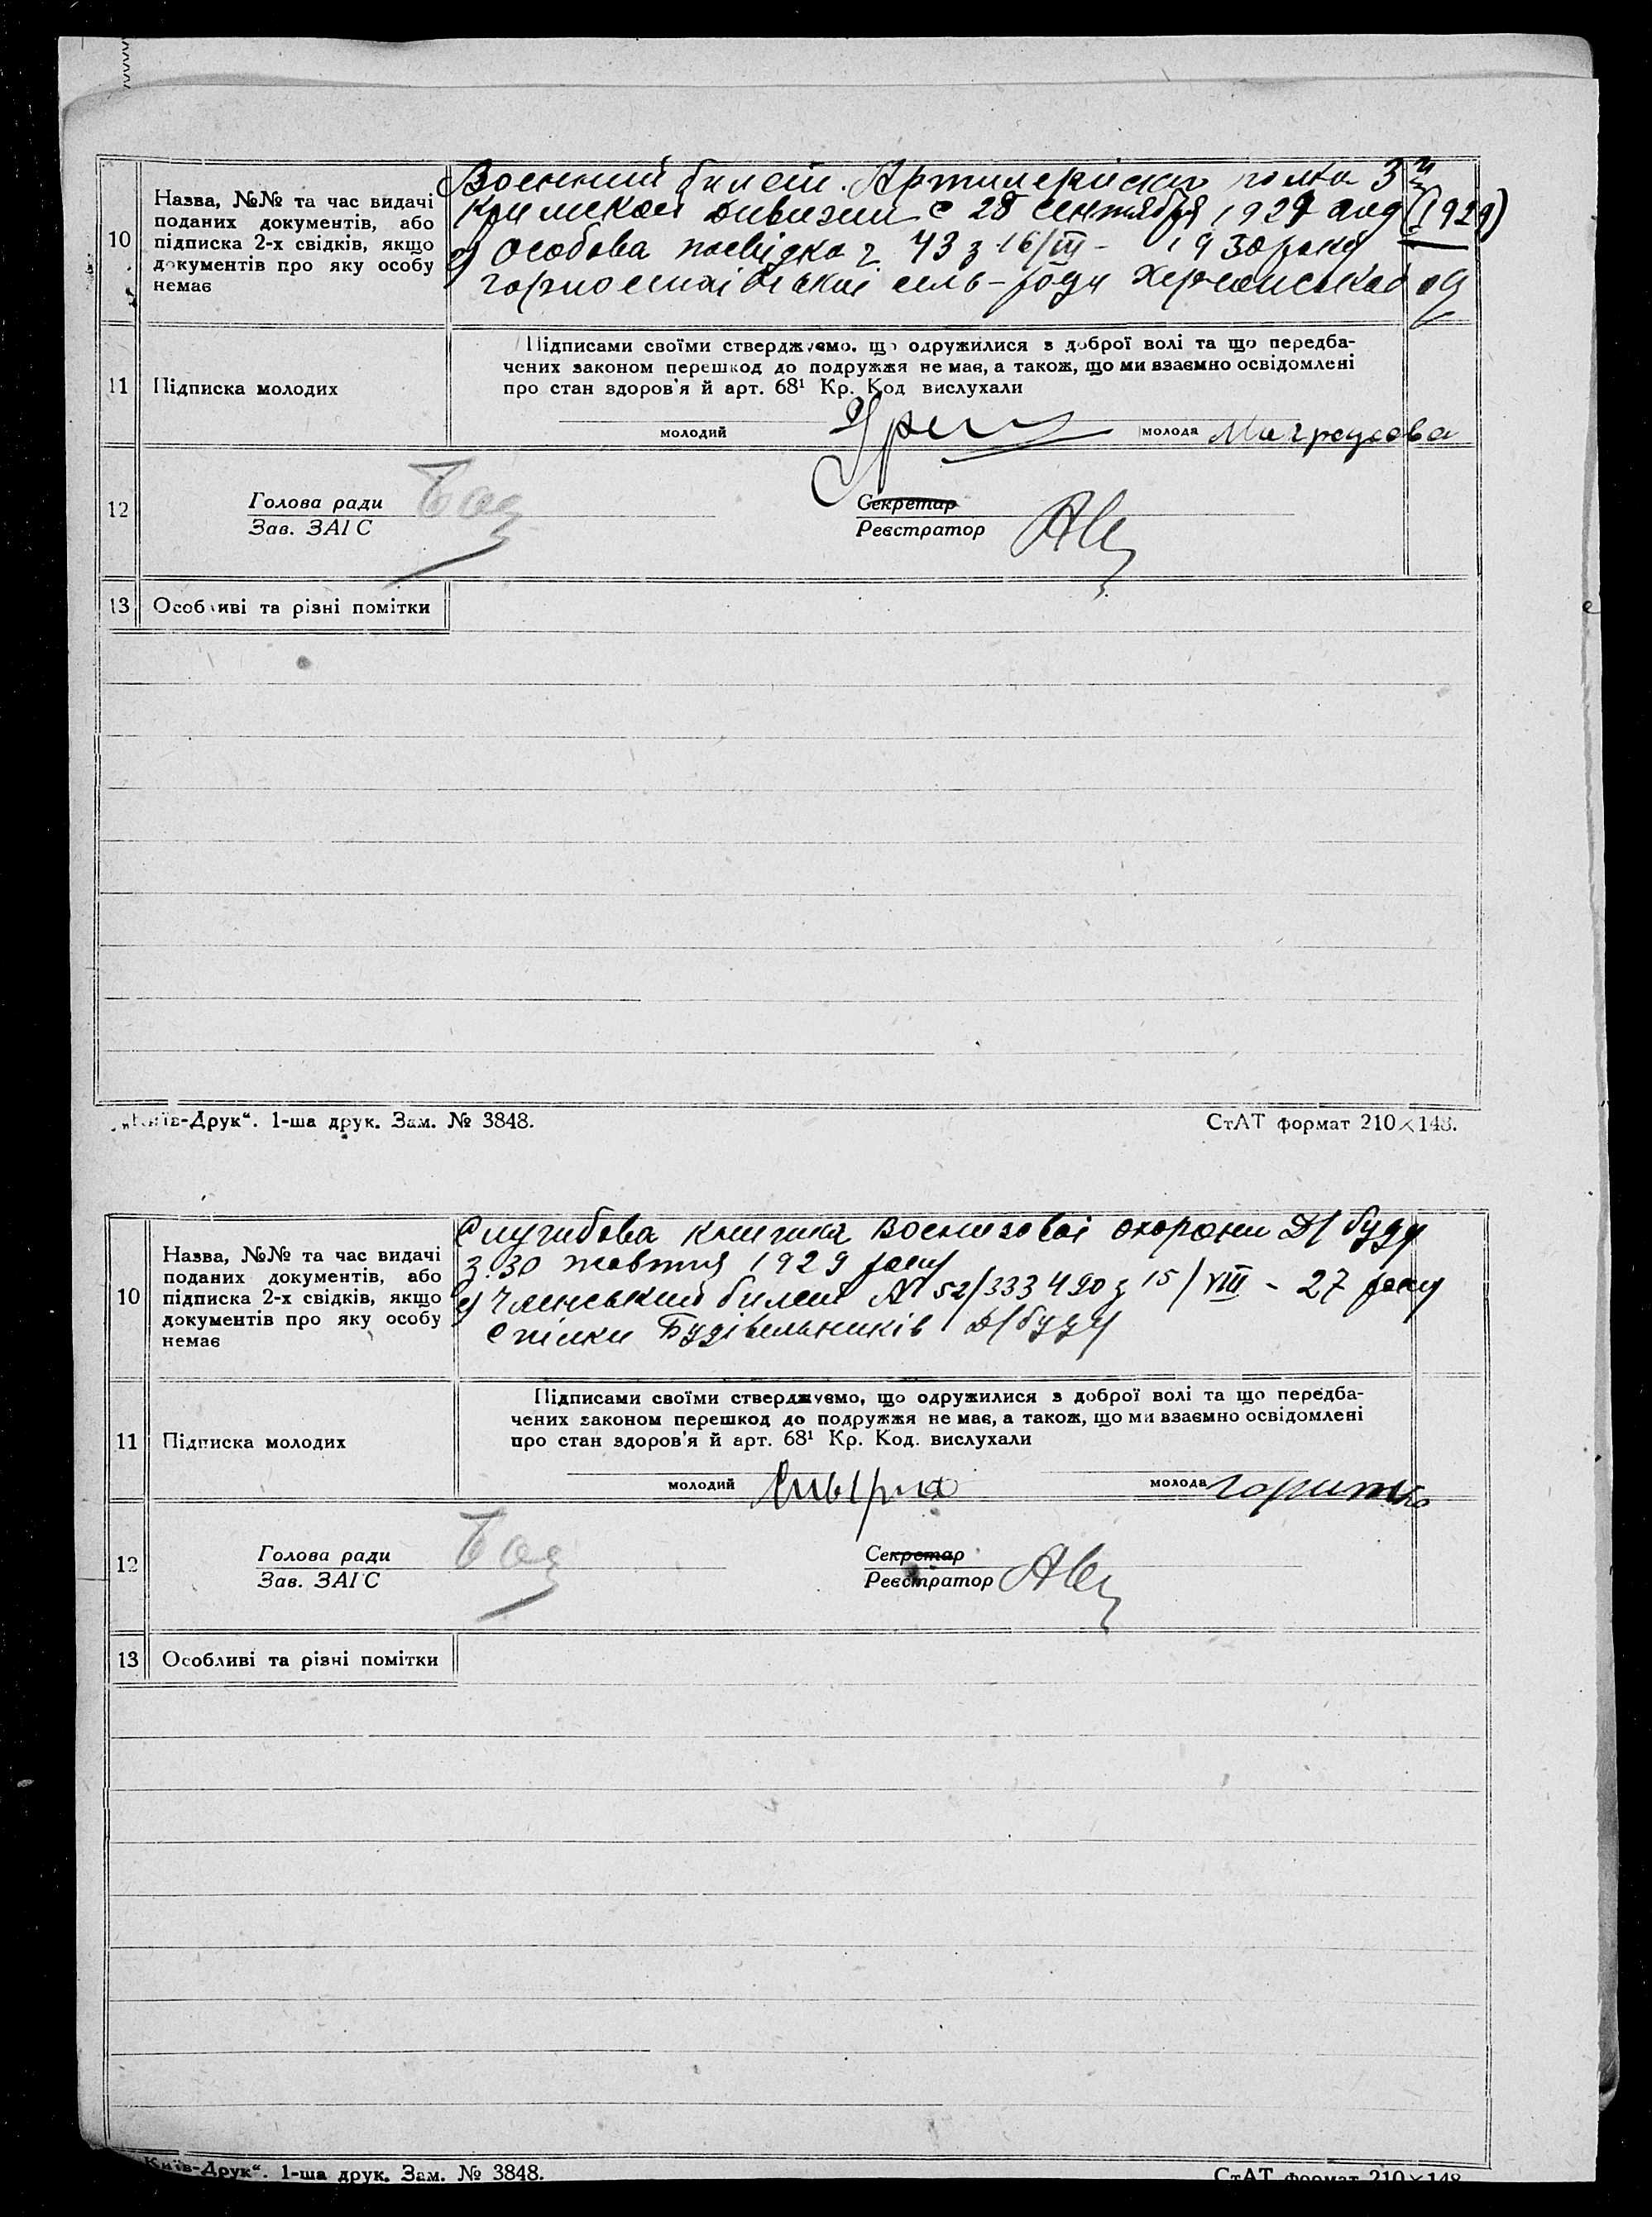 10
Назва, №№ та час видачі
поданих документів, або
підписка 2-х свідків, якщо
документів про яку особу
немає
Военний билет. Артилерийскаго полка 3й
Кримской дивизии с 28 сентября 1929 год (1929)
2) Особова посвідка ч. 43 з 16/III - 1930 року
Горностаівськоі сель-ради Херсонськоі ок
11
Підписка молодих
Підписами своїми стверджуємо, що одружилися з доброї волі та що передба-
чених законом перешкод до подружжя не має, а також, що ми взаємно освідомлені
про стан здоров'я й арт. 68¹ Кр. Код вислухали
молодий
молода
12
Голова ради
Зав. ЗАГС
Секретар
Реєстратор
13
Особливі та різні помітки
„Київ-Друк“. 1-ша друк. Зам. № 3848.
СтАТ формат 210×148.
10
Назва, №№ та час видачі
поданих документів, або
підписка 2-х свідків, якщо
документів про яку особу
немає
Службова книжка военизовоі охорони Д/буду
з 30 жовтня 1929 року
2) Членський билет № 52/333490 з 15/VIII - 27 року
Спілки Будівельників Д/буду
11
Підписка молодих
Підписами своїми стверджуємо, що одружилися з доброї волі та що передба-
чених законом перешкод до подружжя не має, а також, що ми взаємно освідомлені
про стан здоров'я й арт. 68¹ Кр. Код. вислухали
молодий
молода
12
Голова ради
Зав. ЗАГС
Секретар
Реєстратор
13
Особливі та різні помітки
Київ-Друк“. 1-ша друк. Зам. № 3848.
СтАТ формат 210×148